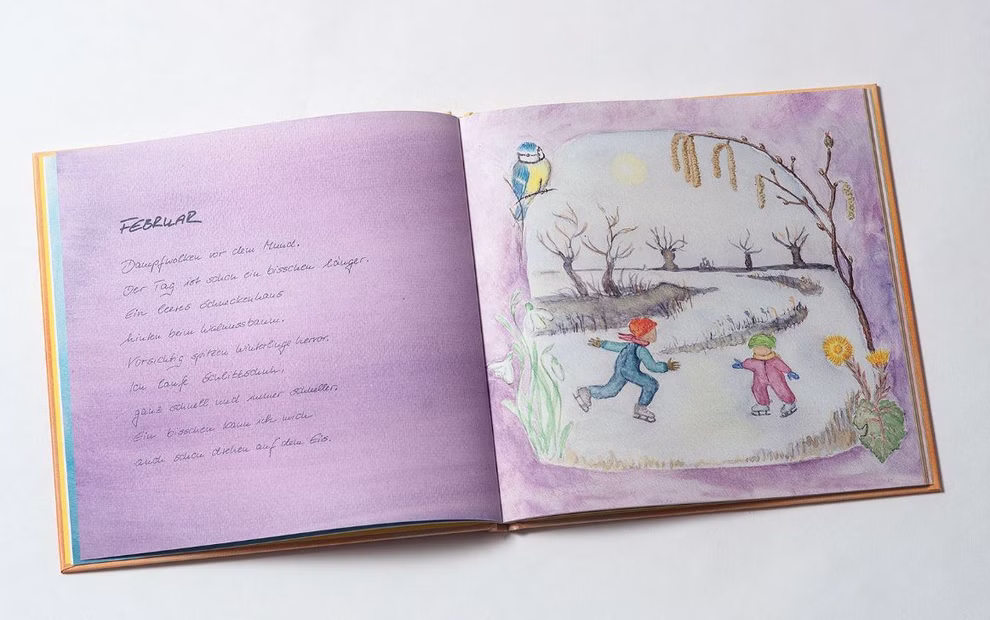 FEBRUAR
Dampfwolken vor dem Mund.
Der Tag ist schon ein bisschen länger.
Ein leeres Schneckenhaus
hinten beim Walnussbaum.
Vorsichtig spitzen Winterlinge hervor.
Ich laufe Schlittschuh,
ganz schnell und immer schneller.
Ein bisschen kann ich mich
auch schon drehen auf dem Eis.